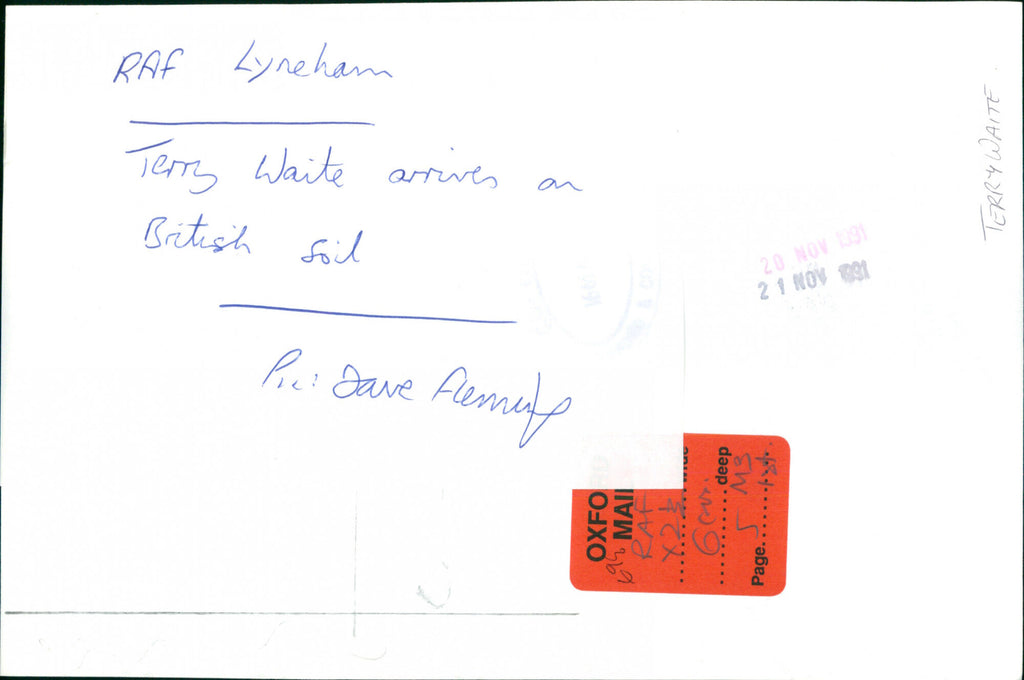 RAF Lyneham
Terry Waite arrives on
British Soil
Pic: Dave Fleming
TERRY WAITE.
20 NOV 1991
21 NOV 1991
OXFO
MAIL
RAF
X2½
6 cm. deep
Page. 5 M3
1st.